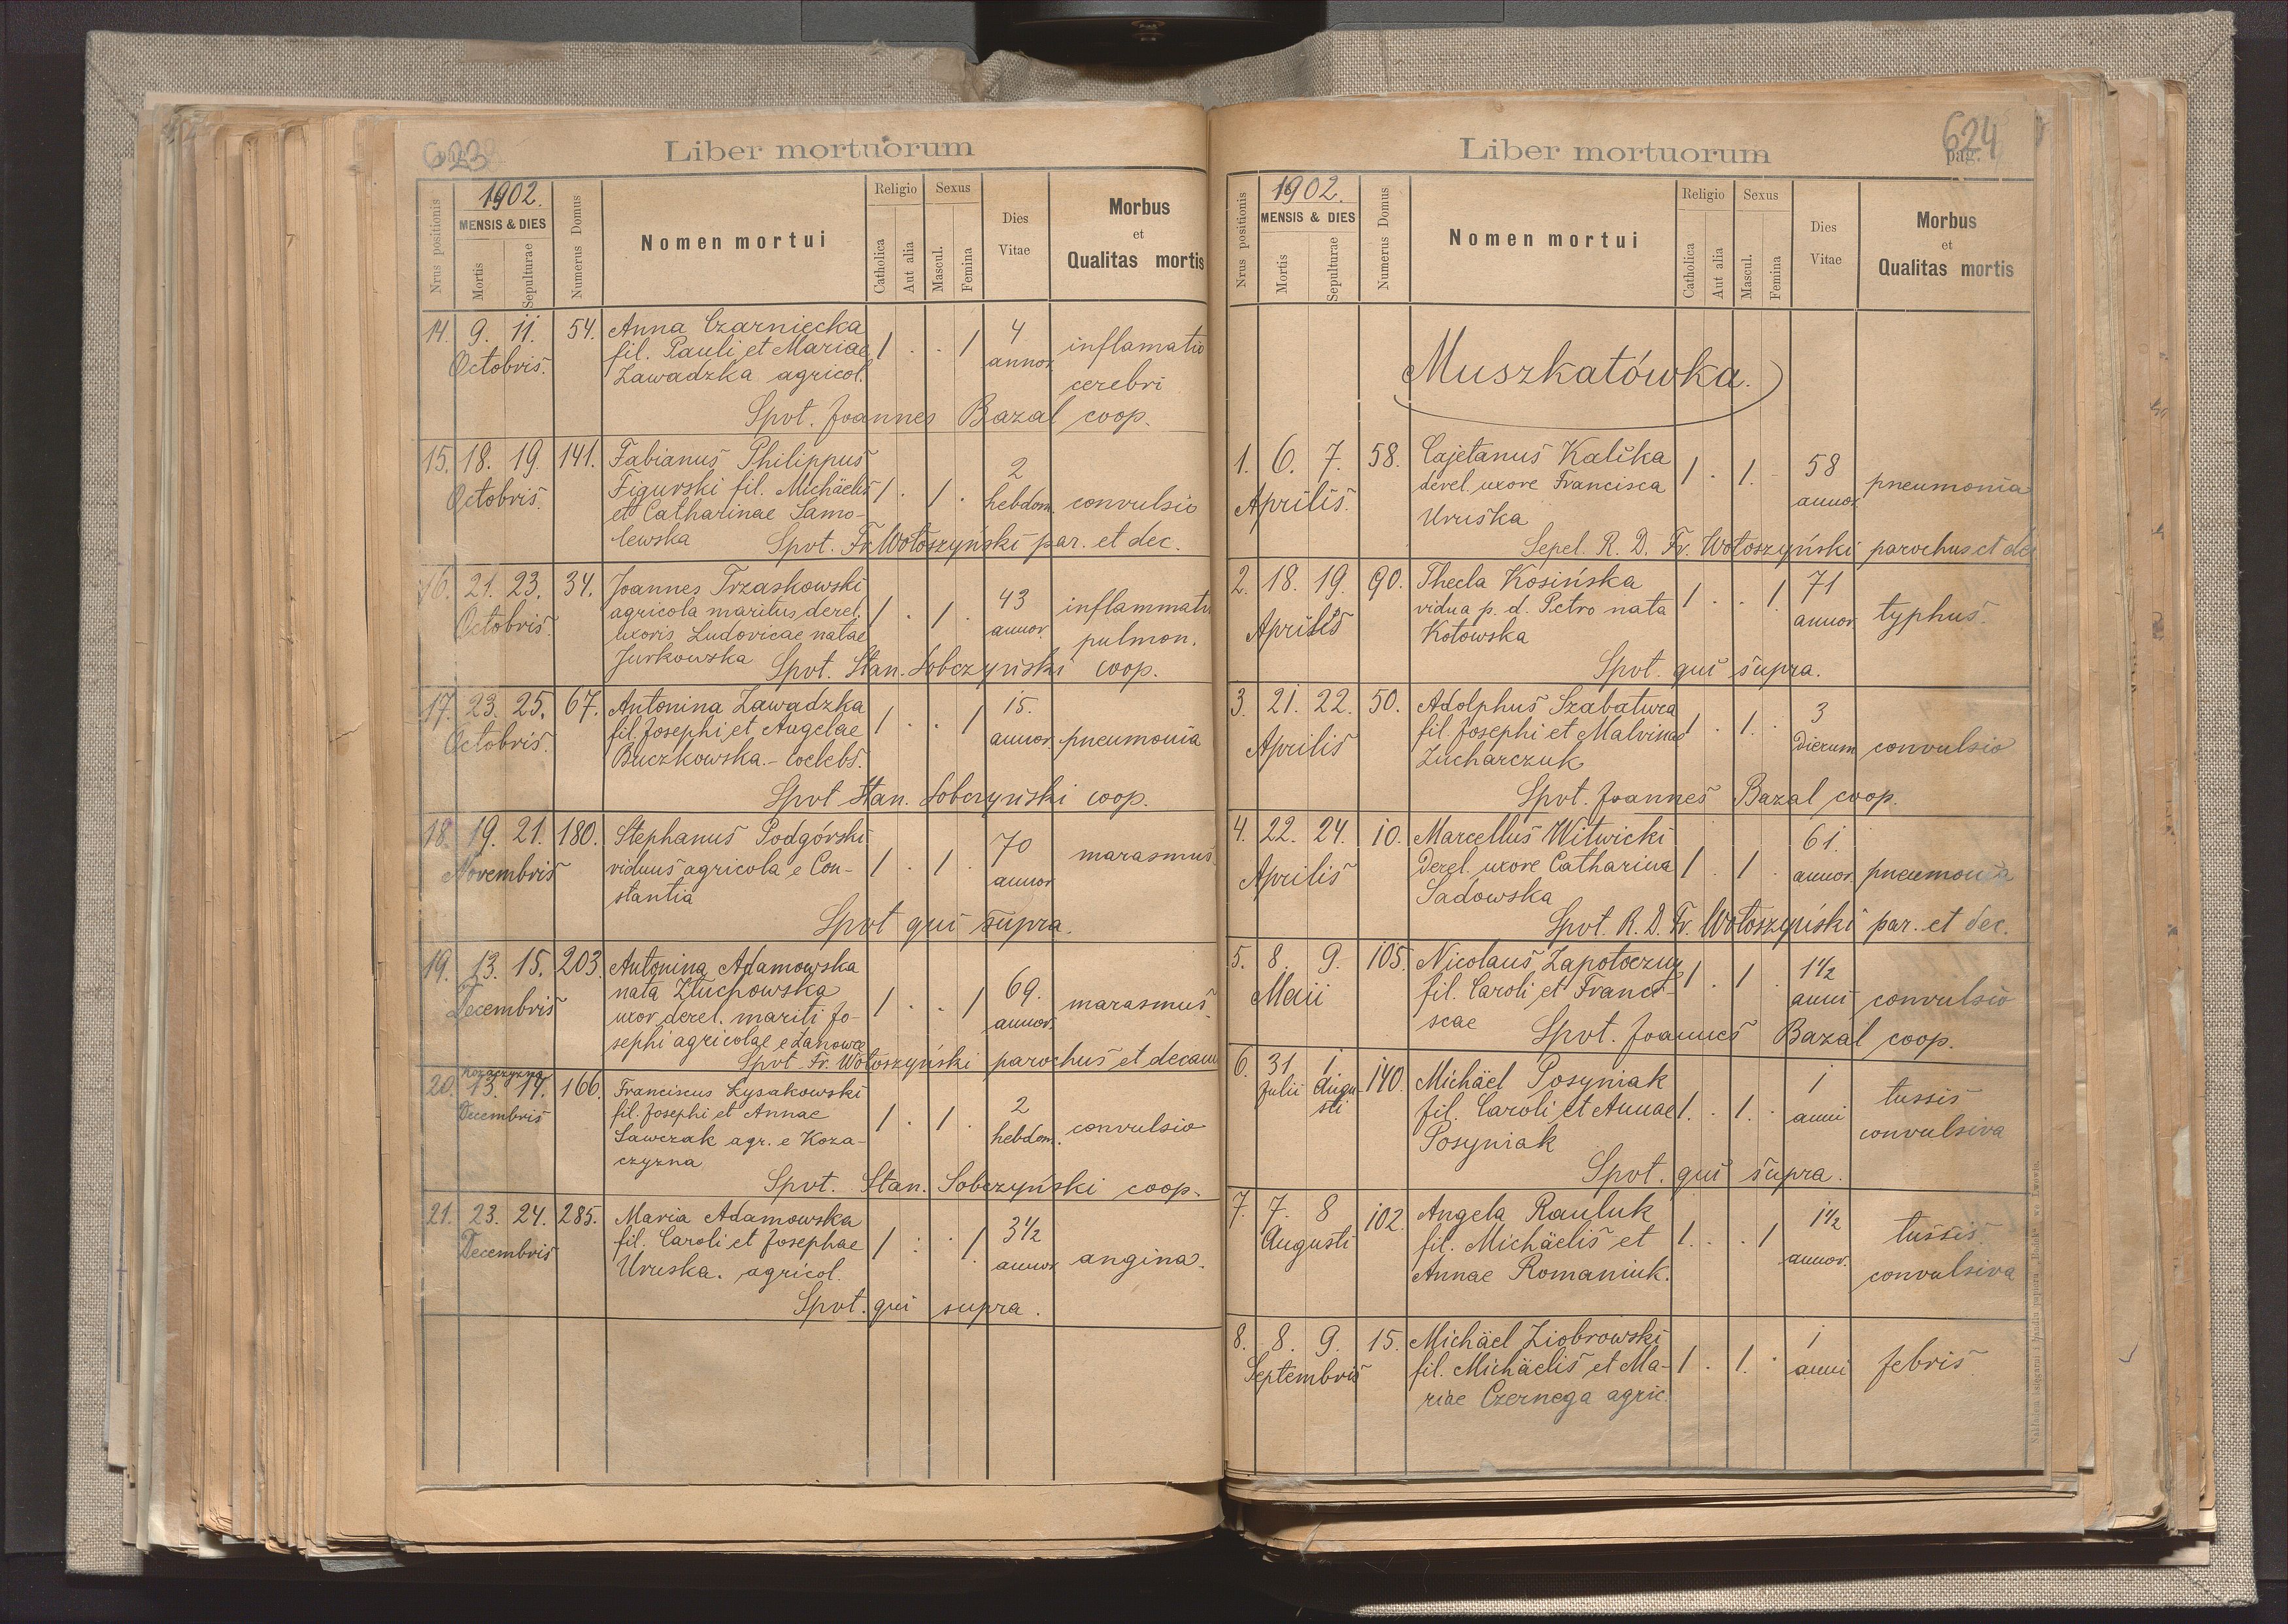 623
Liber mortuorum
Nrus positionis
1902.
MENSIS & DIES
Mortis
Sepulturae
Numerus Domus
Nomen mortui
Religio
Catholica
Aut alia
Sexus
Mascul.
Femina
Dies
Vitae
Morbus
et
Qualitas mortis
14. 9. 11. 54. Anna Czarniecka 4
Octobris. fil. Pauli et Mariae 1 . . 1 annor inflamatio
Zawadzka agricol. cerebri
Spvt. Joannes Bazal coop.
15. 18. 19. 141. Fabianus Philippus 2
Octobris. Figurski fil. Michäelis 1 . 1 . hebdom. convulsio
et Catharinae Samo-
lewska Spvt. Fr. Wołoszyński par. et dec.
16. 21. 23. 34. Joannes Trzaskowski 43
Octobris. agricola maritus derel. 1 . 1 . annor. inflammatio
uxoris Ludovicae natae pulmon.
Jurkowska Spvt. Stan. Sobczyński coop.
17. 23. 25. 67. Antonina Zawadzka 15.
Octobris. fil. Josephi et Angelae 1 . . 1 annor. pneumonia
Buczkowska. - coelebs.
Spvt Stan. Sobczyński coop.
18. 19. 21. 180. Stephanus Podgórski 70
Novembris viduus agricola e Con- 1 . 1 . annor marasmus
stantia
Spvt qui supra.
19. 13. 15. 203. Antonina Adamowska 69.
Decembris nata Ztuchowska 1 . . 1 annor. marasmus.
uxor derel. mariti Jo-
sephi agricolae e Łanowce
Spvt Fr. Wołoszyński parochus et decan
Kozaczyzna
20. 13. 14. 166. Franciscus Łysakowski 2
Decembris fil. Josephi et Annae 1 . 1 . hebdom. convulsio
Sawczak agr. e Koza-
czyzna
Spvt. Stan. Sobczyński coop.
21. 23. 24. 285. Maria Adamowska 3 1/2
Decembris fil. Caroli et Josephae 1 . . 1. annor angina.
Uruska. agricol.
Spvt. qui supra.
624
pag.
Liber mortuorum
Nrus positionis
1902.
MENSIS & DIES
Mortis
Sepulturae
Numerus Domus
Nomen mortui
Religio
Catholica
Aut alia
Sexus
Mascul.
Femina
Dies
Vitae
Morbus
et
Qualitas mortis
Muszkatówka.
1. 6. 7. 58. Cajetanus Kalika 58
Aprilis. derel. uxore Francisca 1 . 1. - annor pneumonia
Uruska
Sepel. R. D. Fr. Wołoszyński parochus et dec
2. 18. 19. 90. Thecla Kosińska 71
Aprilis vidua p. d. Petro nata 1 . . 1. annor typhus.
Kotowska
Spvt. qui supra.
3. 21. 22. 50. Adolphus Szabatura 3
Aprilis fil. Josephi et Malvinae 1 . 1. . Dierum convulsio
Zucharczuk
Spvt. Joannes Bazal coop.
4. 22. 24. 10. Marcellus Witwicki 61.
Aprilis Derel. uxore Catharina 1 . 1 . annor. pneumonia
Sadowska
Spvt. R. D. Fr. Wołoszyński par. et dec.
5. 8. 9. 105. Nicolaus Zapotoczny 1 1/2
Maii fil. Caroli et Franci- 1 . 1 . anni convulsio
scae Spvt. Joannes Bazal coop.
6. 31 1 140. Michäel Posyniak 1
Julii Augu- fil. Caroli et Annae 1. . 1. . anni tussis
sti Posyniak convulsiva
Spvt. qui supra.
7. 7. 8 102. Angela Rauluk 1 1/2
Augusti fil. Michäelis et 1. . . 1 annor. tussis.
Annae Romaniuk. convulsiva
8. 8. 9. 15. Michäel Ziobrowski 1
Septembris fil. Michäelis et Ma- 1 . 1. . anni febris
riae Czernega agric.